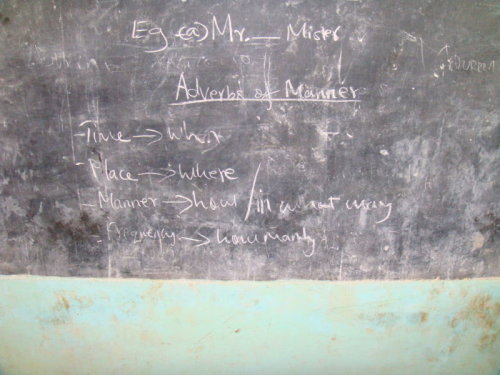 Eg (a) Mr. — Mister
Adverbs of Manner
- Time → when
- Place → where
- Manner → how / in what way
- Frequency → how many